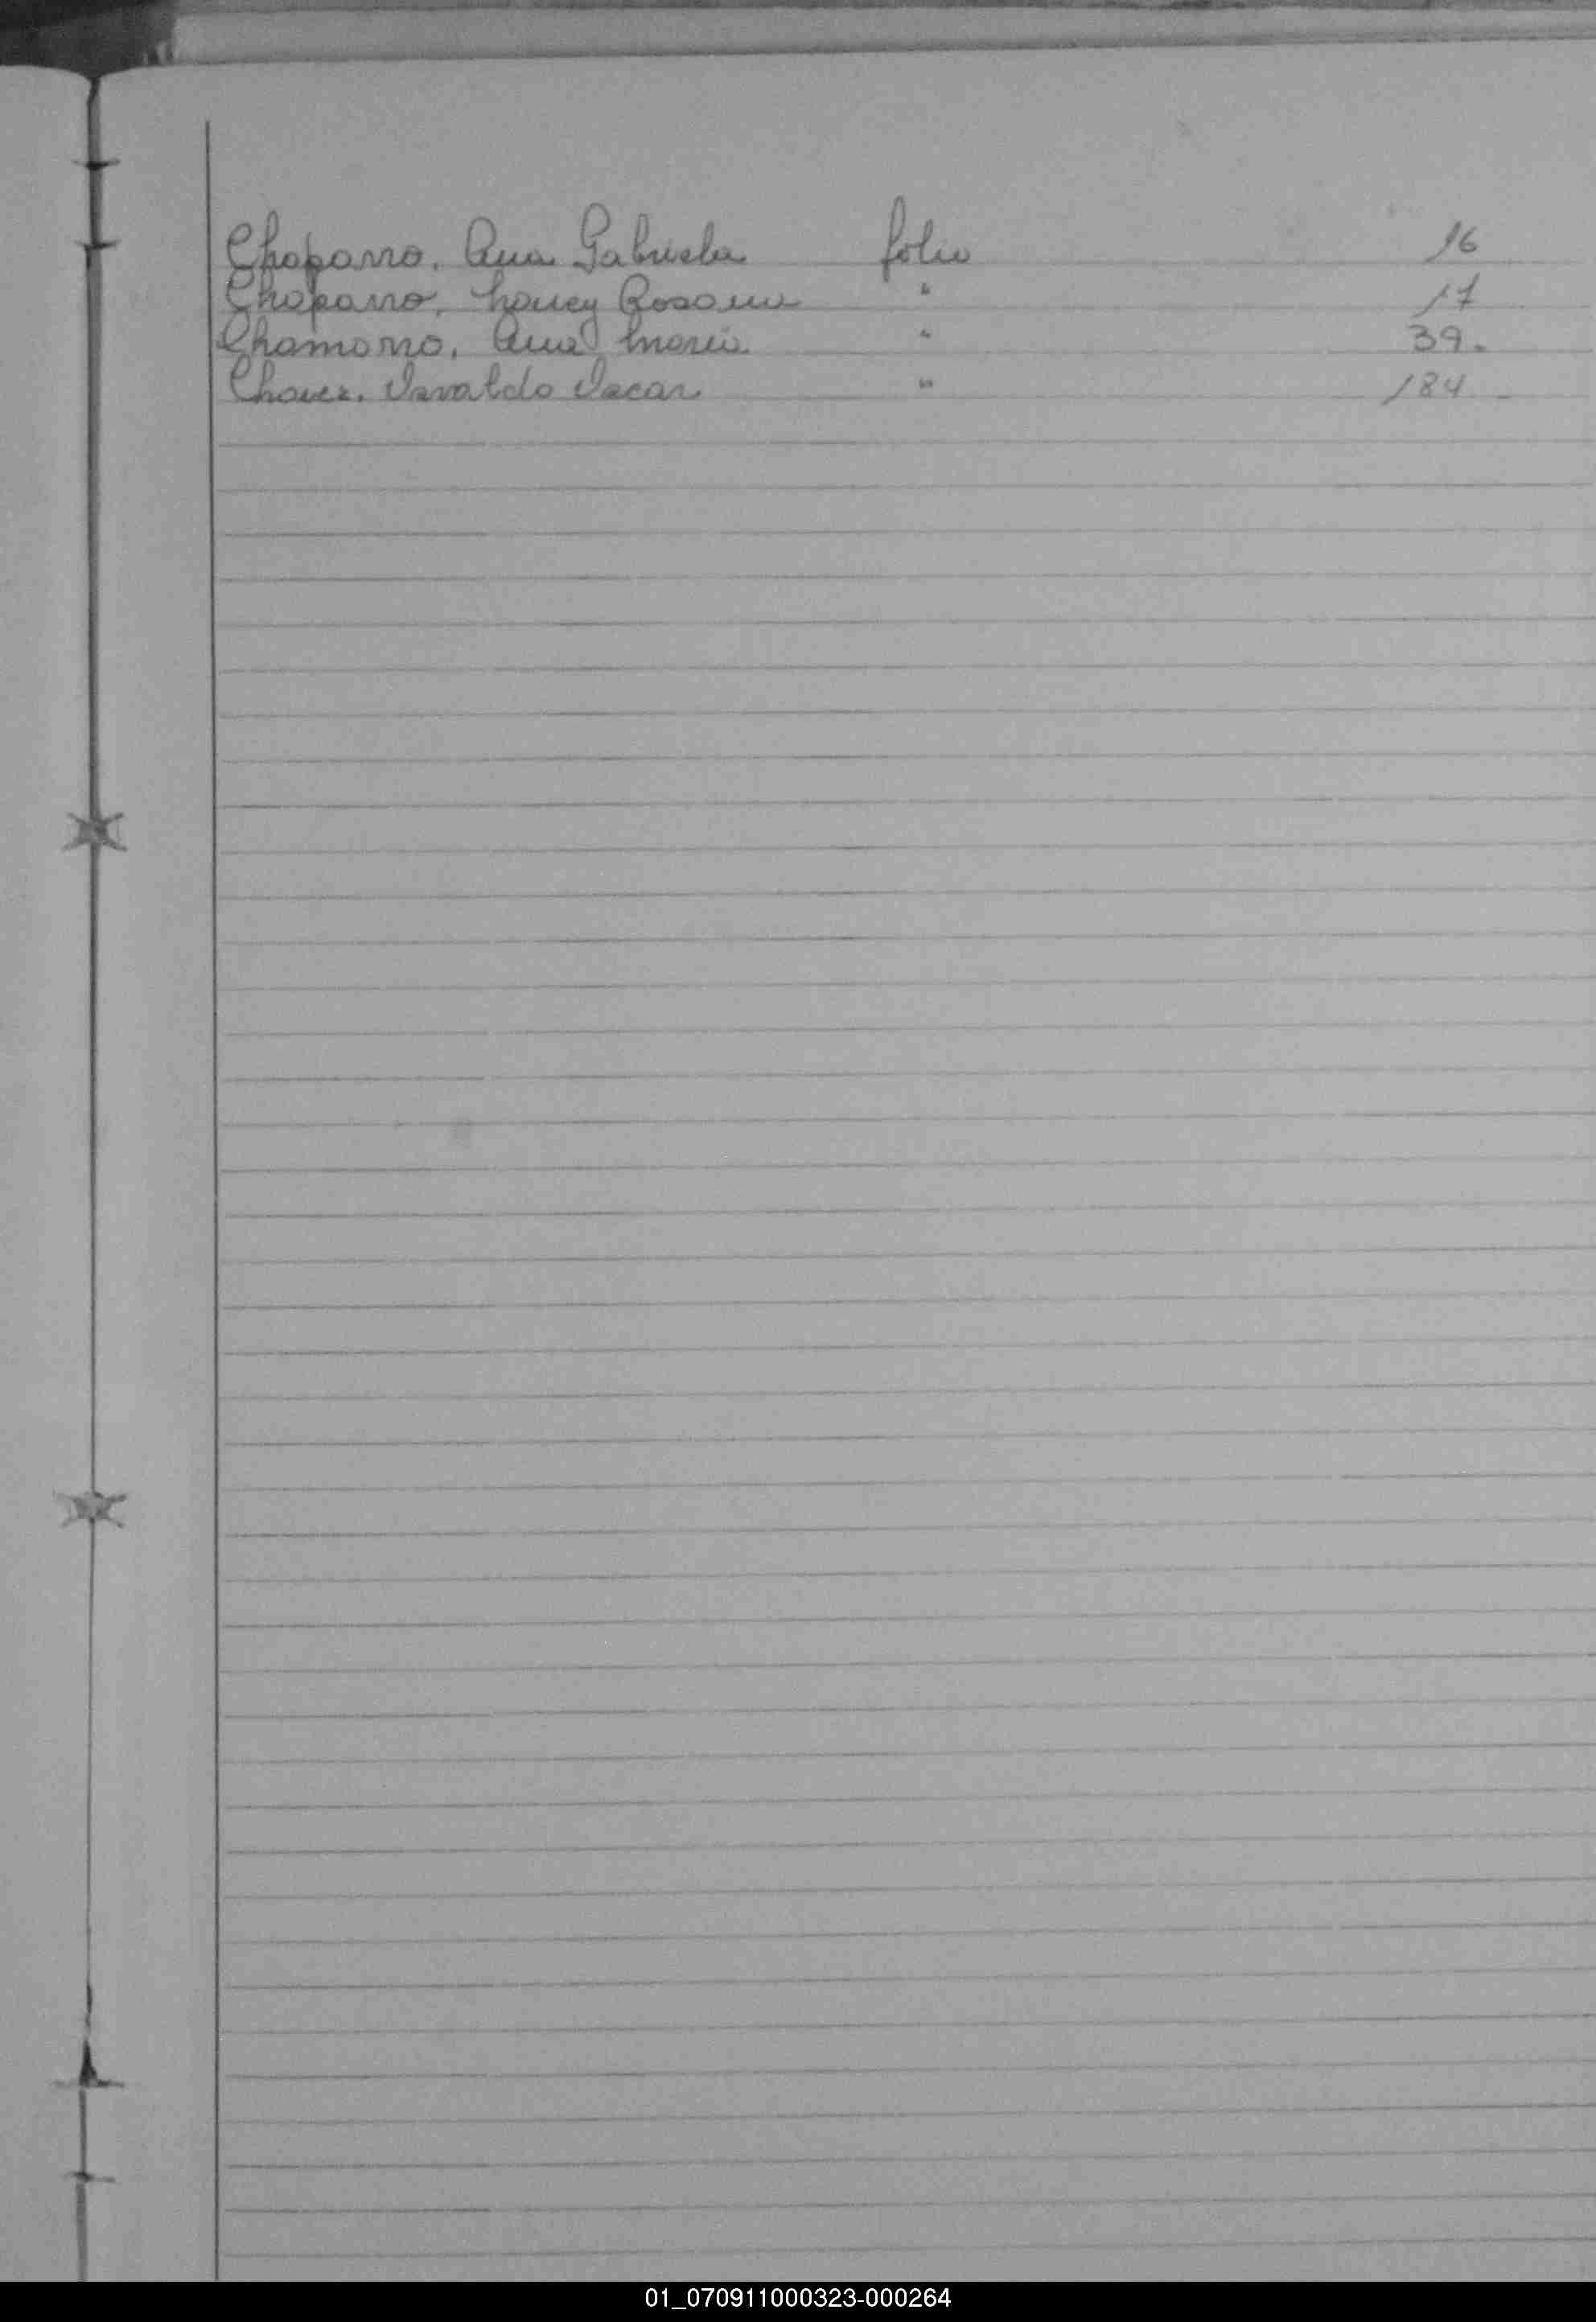 Chaparro, Ana Gabriela folio 16
Chaparro, Nancy Rosana " 17
Chamorro, Ana Maria " 39.
Chavez, Osvaldo Oscar " 184
01_070911000323-000264